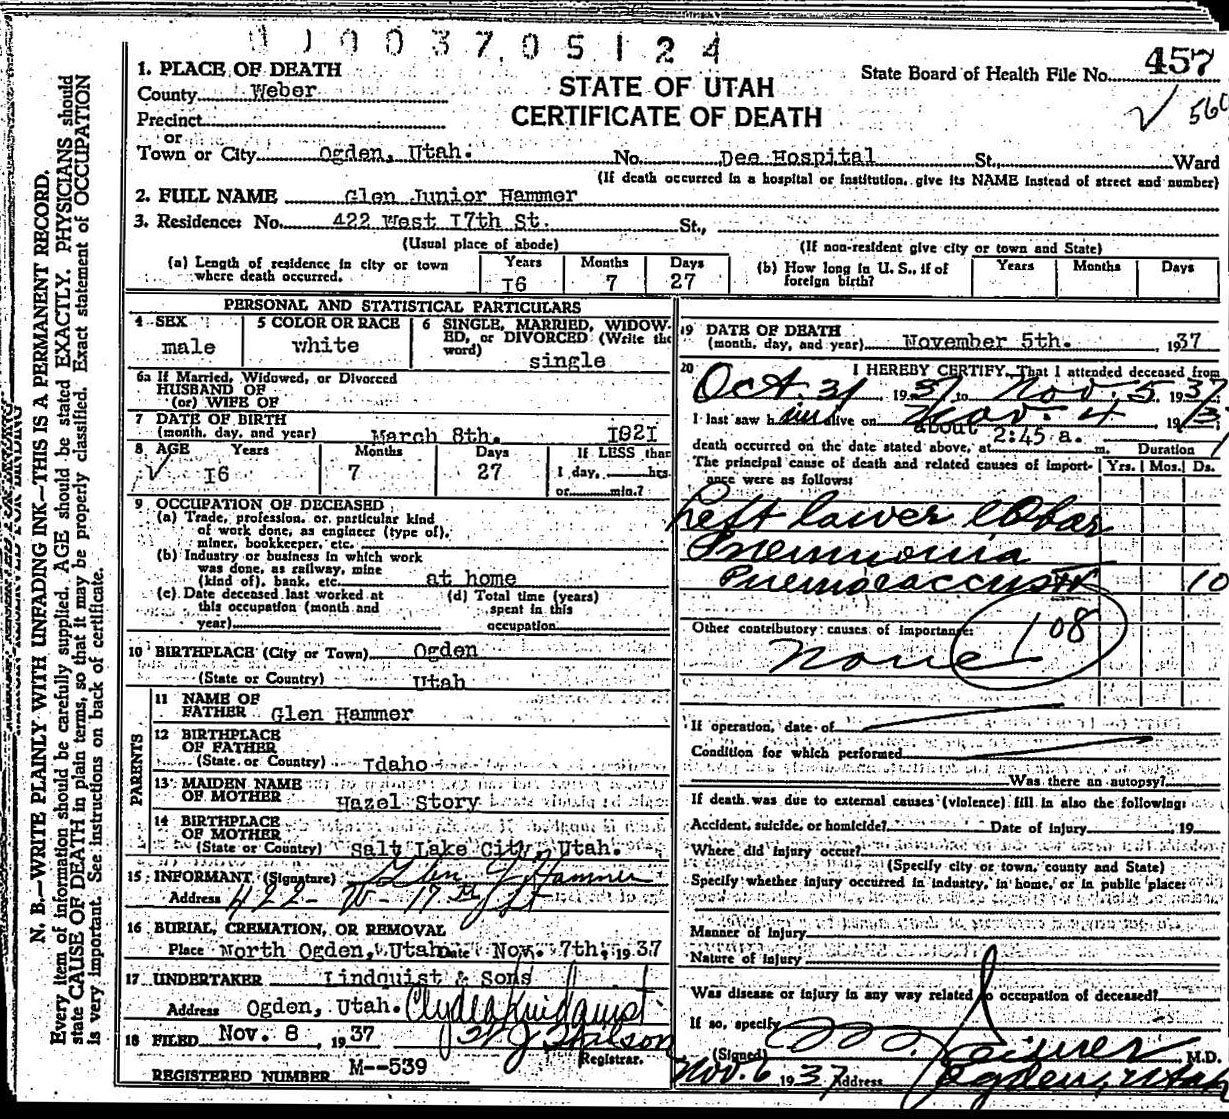 0 J 0 0 3 7 0 5 1 2 4
457
State Board of Health File No.
560
STATE OF UTAH
CERTIFICATE OF DEATH
1. PLACE OF DEATH
County Weber
Precinct
or
Town or City Ogden, Utah. No. Dee Hospital St., Ward
(If death occurred in a hospital or institution, give its NAME instead of street and number)
2. FULL NAME Glen Junior Hammer
3. Residence: No. 422 West 17th St. St.,
(Usual place of abode) (If non-resident give city or town and State)
(a) Length of residence in city or town where death occurred. Years 16 Months 7 Days 27
(b) How long in U. S., if of foreign birth? Years Months Days
PERSONAL AND STATISTICAL PARTICULARS
4 SEX male
5 COLOR OR RACE white
6 SINGLE, MARRIED, WIDOWED, or DIVORCED (Write the word) single
6a If Married, Widowed, or Divorced
HUSBAND OF
(or) WIFE OF
7 DATE OF BIRTH
(month, day, and year) March 8th. 1921
8 AGE Years 16 Months 7 Days 27 If LESS than
1 day, hrs.
or min.?
9 OCCUPATION OF DECEASED
(a) Trade, profession, or particular kind
of work done, as engineer (type of),
miner, bookkeeper, etc.
(b) Industry or business in which work
was done, as railway, mine
(kind of), bank, etc. at home
(c) Date deceased last worked at
this occupation (month and
year)
(d) Total time (years)
spent in this
occupation
10 BIRTHPLACE (City or Town) Ogden
(State or Country) Utah
PARENTS
11 NAME OF
FATHER Glen Hammer
12 BIRTHPLACE
OF FATHER
(State or Country) Idaho
13 MAIDEN NAME
OF MOTHER Hazel Story
14 BIRTHPLACE
OF MOTHER
(State or Country) Salt Lake City, Utah.
15 INFORMANT (Signature) Glen Hammer
Address 422 - W - 17th St
16 BURIAL, CREMATION, OR REMOVAL
Place North Ogden, Utah Date Nov. 7th, 1937
17 UNDERTAKER Lindquist & Sons
Address Ogden, Utah. Clyde Lindquist
18 FILED Nov. 8, 1937
Registrar.
REGISTERED NUMBER M--539
19 DATE OF DEATH
(month, day, and year) November 5th. , 1937
20 I HEREBY CERTIFY, That I attended deceased from
Oct. 31 1937 to Nov. 5. 1937
I last saw him alive on Nov. 4
about 2:45 a.
death occurred on the date stated above, at m. Duration
The principal cause of death and related causes of importance were as follows: Yrs. Mos. Ds.
Left lower lobar
Pnemmonia
10
Other contributory causes of importance:
None
108
If operation, date of
Condition for which performed
Was there an autopsy?
If death was due to external causes (violence) fill in also the following:
Accident, suicide, or homicide? Date of injury 19
Where did injury occur?
(Specify city or town, county and State)
Specify whether injury occurred in industry, in home, or in public place:
Manner of injury
Nature of injury
Was disease or injury in any way related to occupation of deceased?
If so, specify
(Signed) M.D.
Nov. 6 1937 Address Ogden, Utah
N. B.—WRITE PLAINLY WITH UNFADING INK—THIS IS A PERMANENT RECORD.
Every item of information should be carefully supplied. AGE should be stated EXACTLY. PHYSICIANS should
state CAUSE OF DEATH in plain terms, so that it may be properly classified. Exact statement of OCCUPATION
is very important. See instructions on back of certificate.